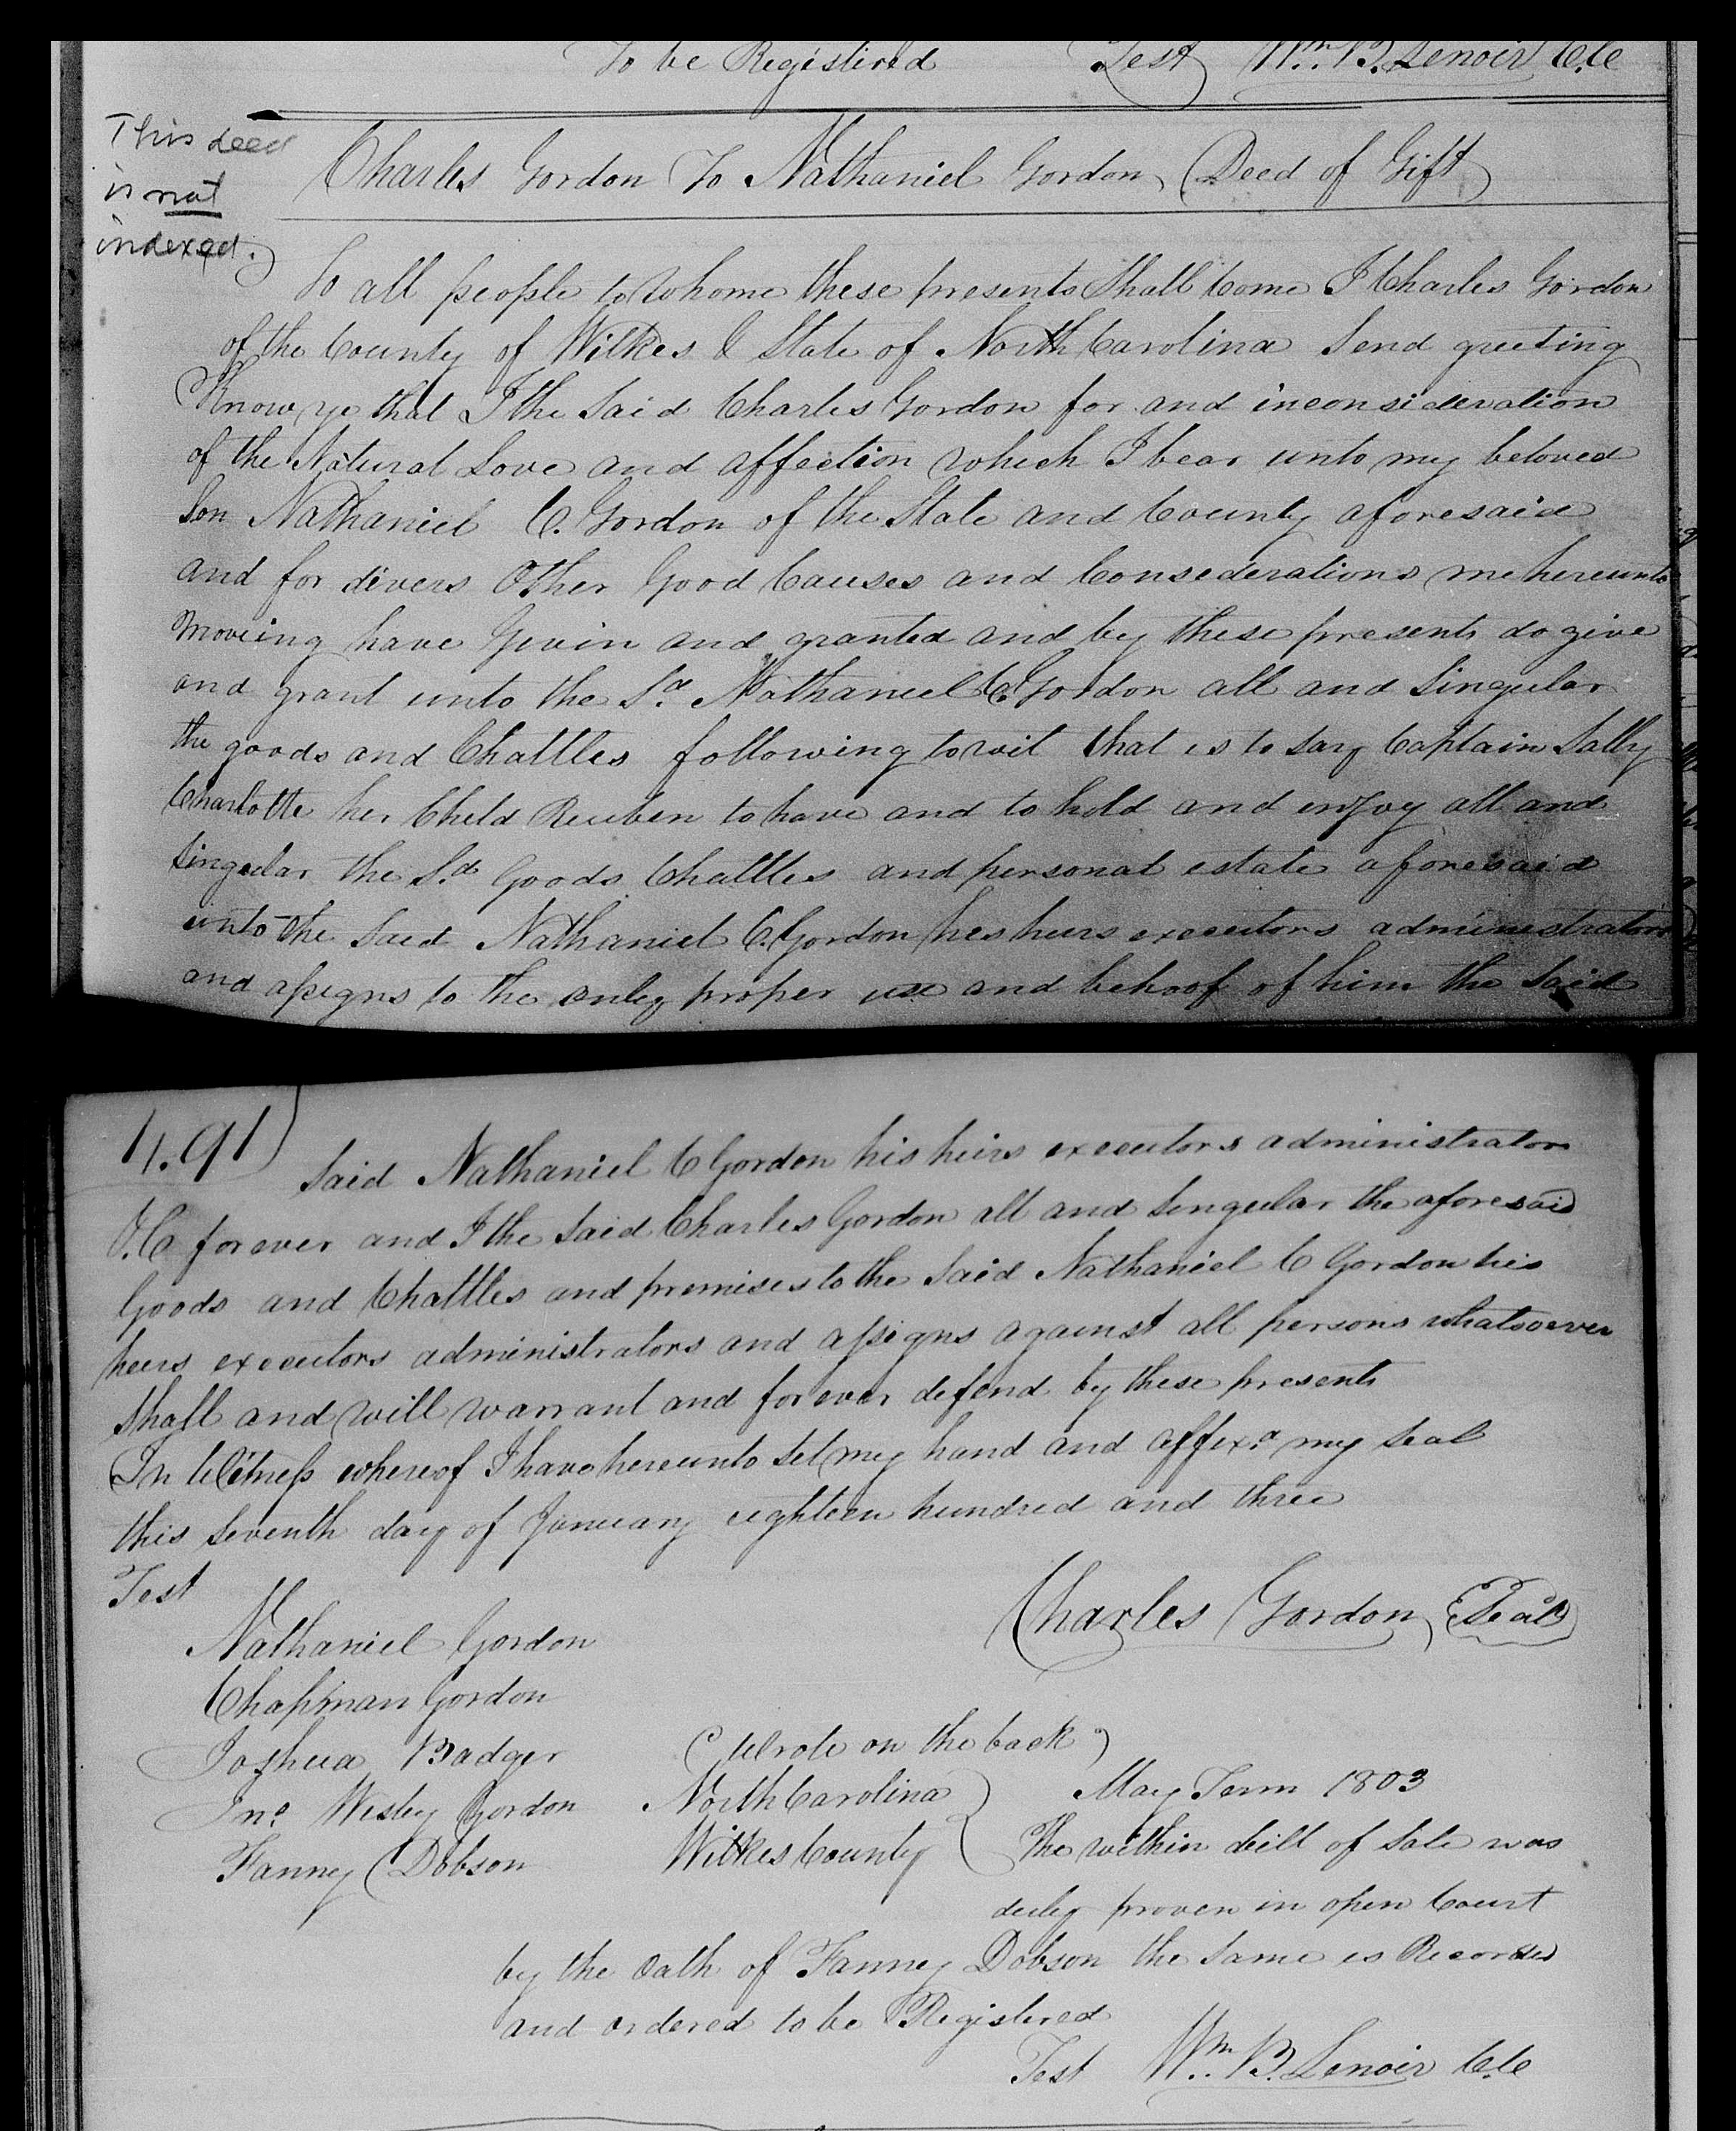 To be Registired Test Wm. B. Lenoir C.C
This deed
is not
indexed.
Charles Gordon To Nathaniel Gordon (Deed of Gift)
To all people to whome these presents Shall Come I Charles Gordon
of the County of Wilkes & State of North Carolina Send greeting
Know ye that I the Said Charles Gordon for and inconsideration
of the Natural Love and affection which I bear unto my beloved
Son Nathaniel C. Gordon of the State and County aforesaid
and for divers Other Good Causes and Considerations me hereunto
moveing have Givin and granted and by these presents do give
and grant unto the Sd. Nathaniel C. Gordon all and Singular
the goods and Chattles following towit that is to say Captain Sally
Charlotte her Child Reuben to have and to hold and enjoy all and
Singular the Sd. Goods Chattles and personal estate aforesaid
unto the Said Nathaniel C. Gordon his heirs executors administrators
and assigns to the only proper use and behoof of him the Said
491
Said Nathaniel C Gordon his heirs executors administrators
&C forever and I the Said Charles Gordon all and Singular the aforesaid
Goods and Chattles and premises to the Said Nathaniel C Gordon his
heirs executors administrators and assigns against all persons whatsoever
Shall and will warrant and forever defend by these presents
In Witness whereof I have hereunto Set my hand and affixd. my Seal
this Seventh day of January eighteen hundred and three
Test
Charles Gordon (Seal)
Nathaniel Gordon
Chapman Gordon
Joshua Badger (Wrote on the back)
Jno. Wesley Gordon North Carolina May Term 1803
Fanney Dobson Wilkes County The within bill of Sale was
duly proven in open Court
by the Oath of Fanney Dobson the Same is Recorded
and ordered to be Registered
Test Wm. B. Lenoir C.C